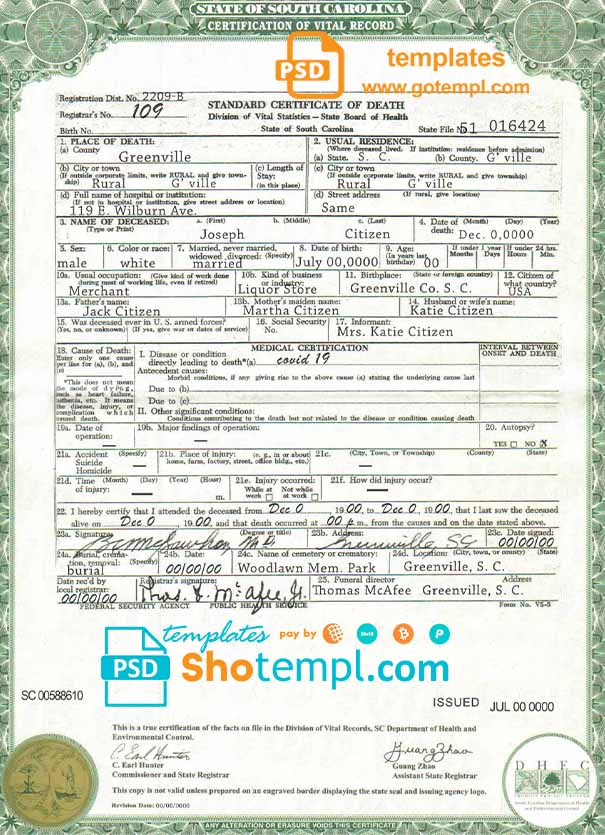 STATE OF SOUTH CAROLINA
CERTIFICATION OF VITAL RECORD
PSD templates
www.gotempl.com
Registration Dist. No. 2209-B
Registrar's No. 109
Birth No.
STANDARD CERTIFICATE OF DEATH
Division of Vital Statistics—State Board of Health
State of South Carolina
State File No. 51 016424
1. PLACE OF DEATH:
(a) County
Greenville
(b) City or town
(If outside corporate limits, write RURAL and give township)
Rural G' ville
(c) Length of Stay:
(in this place)
(d) Full name of hospital or institution:
(If not in hospital or institution, give street address or location)
119 E. Wilburn Ave.
2. USUAL RESIDENCE:
(Where deceased lived. If institution: residence before admission)
(a) State. S. C. (b) County. G' ville
(c) City or town
(If outside corporate limits, write RURAL and give township)
Rural G' ville
(d) Street address (If rural, give location)
Same
3. NAME OF DECEASED:
(Type or Print)
a. (First) b. (Middle) c. (Last)
Joseph Citizen
4. Date of (Month) (Day) (Year)
death: Dec. 0,0000
5. Sex:
male
6. Color or race:
white
7. Married, never married, widowed, divorced: (Specify)
married
8. Date of birth:
July 00,0000
9. Age:
(In years last birthday) 00
If under 1 year
Months Days
If under 24 hrs.
Hours Min.
10a. Usual occupation: (Give kind of work done during most of working life, even if retired)
Merchant
10b. Kind of business or industry:
Liquor Store
11. Birthplace: (State or foreign country)
Greenville Co. S. C.
12. Citizen of what country?
USA
13a. Father's name:
Jack Citizen
13b. Mother's maiden name:
Martha Citizen
14. Husband or wife's name:
Katie Citizen
15. Was deceased ever in U. S. armed forces?
(Yes, no, or unknown) (If yes, give war or dates of service)
16. Social Security No.
17. Informant:
Mrs. Katie Citizen
18. Cause of Death:
Enter only one cause per line for (a), (b), and (c)
*This does not mean the mode of dying, such as heart failure, asthenia, etc. It means the disease, injury, or complication which caused death.
MEDICAL CERTIFICATION
INTERVAL BETWEEN ONSET AND DEATH
I. Disease or condition
directly leading to death*(a) covid 19
Antecedent causes:
Morbid conditions, if any, giving rise to the above cause (a) stating the underlying cause last
Due to (b)
Due to (c)
II. Other significant conditions:
Conditions contributing to the death but not related to the disease or condition causing death
19a. Date of operation: —
19b. Major findings of operation:
—
20. Autopsy?
YES NO X
21a. Accident (Specify)
Suicide
Homicide —
21b. Place of injury: (e. g., in or about home, farm, factory, street, office bldg., etc.)
21c. (City, Town, or Township) (County) (State)
21d. Time (Month) (Day) (Year) (Hour)
of injury: — m.
21e. Injury occurred:
While at work Not while at work
21f. How did injury occur?
—
22. I hereby certify that I attended the deceased from Dec 0 19 00, to Dec 0, 19 00, that I last saw the deceased
alive on Dec 0 19 00, and that death occurred at 00 p.m., from the causes and on the date stated above.
23a. Signature (Degree or title)
23b. Address:
Greenville, SC
23c. Date signed
00/00/00
24a. Burial, cremation, removal: (Specify)
burial
24b. Date
00/00/00
24c. Name of cemetery or crematory:
Woodlawn Mem. Park
24d. Location: (City, town, or county) (State)
Greenville, S. C.
Date rec'd by local registrar:
00/00/00
Registrar's signature:
Thos. J. McAfee, Jr.
25. Funeral director Address
Thomas McAfee Greenville, S. C.
FEDERAL SECURITY AGENCY PUBLIC HEALTH SERVICE Form No. VS-5
PSD templates pay by
Shotempl.com
SC 00588610
ISSUED JUL 00 0000
This is a true certification of the facts on file in the Division of Vital Records, SC Department of Health and
Environmental Control.
C. Earl Hunter
Guang Zhao
C. Earl Hunter
Commissioner and State Registrar
Guang Zhao
Assistant State Registrar
This copy is not valid unless prepared on an engraved border displaying the state seal and issuing agency logo.
Revision Date: 00/00/0000
DHEC
South Carolina Department of Health
and Environmental Control
ANY ALTERATION OR ERASURE VOIDS THIS CERTIFICATE